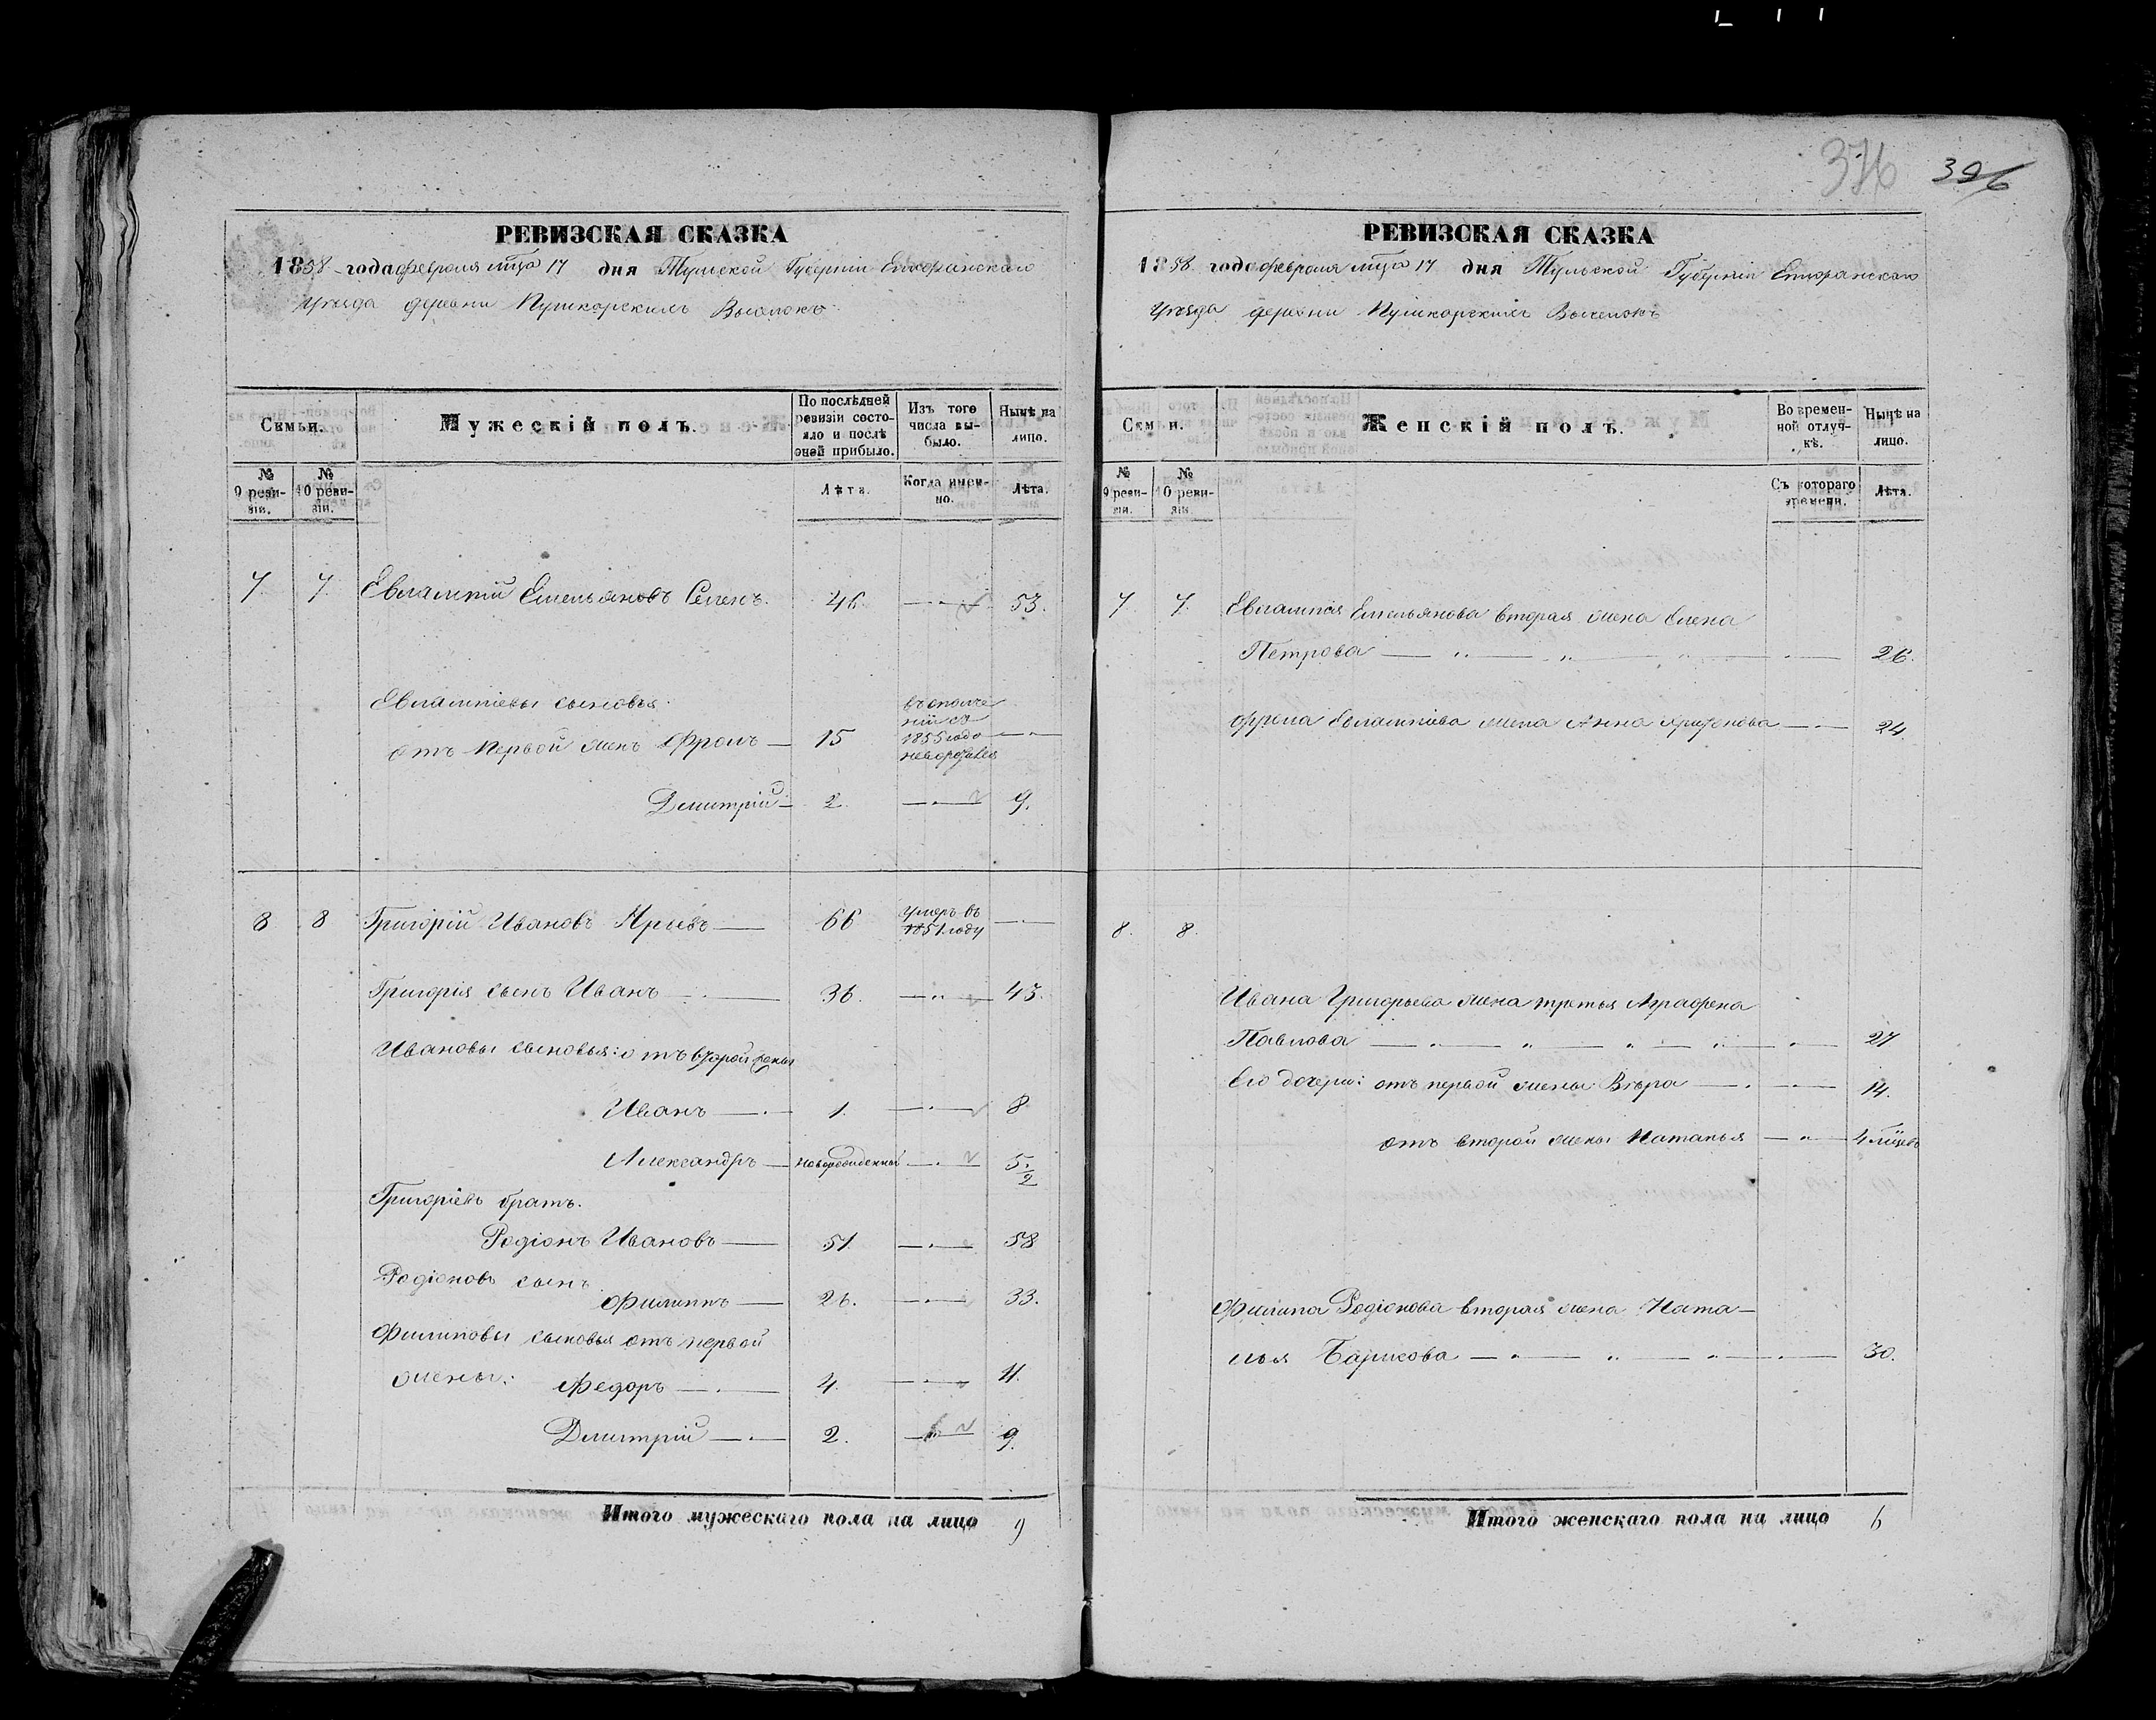 376 396
РЕВИЗСКАЯ СКАЗКА
1858 года февраля мца 17 дня Тульской Губерніи Епифанскаго
Уѣзда деревни Пушкарскихъ Выселокъ
Семьи.
Мужескій полъ.
По послѣдней ревизіи состояло и послѣ оной прибыло.
Изъ того числа выбыло.
Нынѣ на лицо.
№ 9 ревизіи.
№ 10 ревизіи.
Лѣта.
Когда именно.
Лѣта.
7. 7. Евлампій Емельяновъ 46. 53.
Евлампіевы сыновья
отъ первой жены Фролъ 15 въ ополченіи съ 1855 года
Дмитрій 2. 9.
8 8 Григорій Ивановъ 66 умеръ въ 1851 году
Григорія сынъ Иванъ 36. 43.
Ивановы сыновья: отъ второй жены
Иванъ 1. 8
Александръ новорожденный 5 1/2
Григоріевъ братъ.
Родіонъ Ивановъ 51 58
Родіоновъ сынъ
Филиппъ 26. 33.
Филиповы сыновья отъ первой
жены: Федоръ 4. 11.
Дмитрій 2. 9.
Итого мужескаго пола на лицо 9
РЕВИЗСКАЯ СКАЗКА
1858 года февраля мца 17 дня Тульской Губерніи Епифанскаго
Уѣзда деревни Пушкарскихъ Выселокъ
Семьи.
Женскій полъ.
Во временной отлучкѣ.
Нынѣ на лицо.
№ 9 ревизіи.
№ 10 ревизіи.
Съ котораго времени.
Лѣта.
7 7. Евлампія Емельянова вторая жена Елена
Петрова 26.
Фрола Евлампіева жена Анна 24.
8. 8.
Ивана Григорьева жена третья Аграфена
Павлова 27
Его дочери: отъ первой жены Вѣра 14.
отъ второй жены Наталья 4
Филипа Родіонова вторая жена Ната-
лья Борисова 30.
Итого женскаго пола на лицо 6